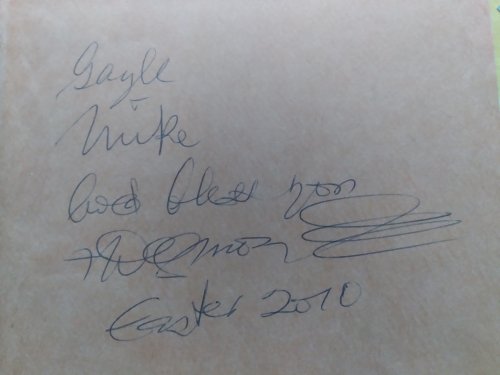 Gayle
Mike
God bless you
Easter 2010